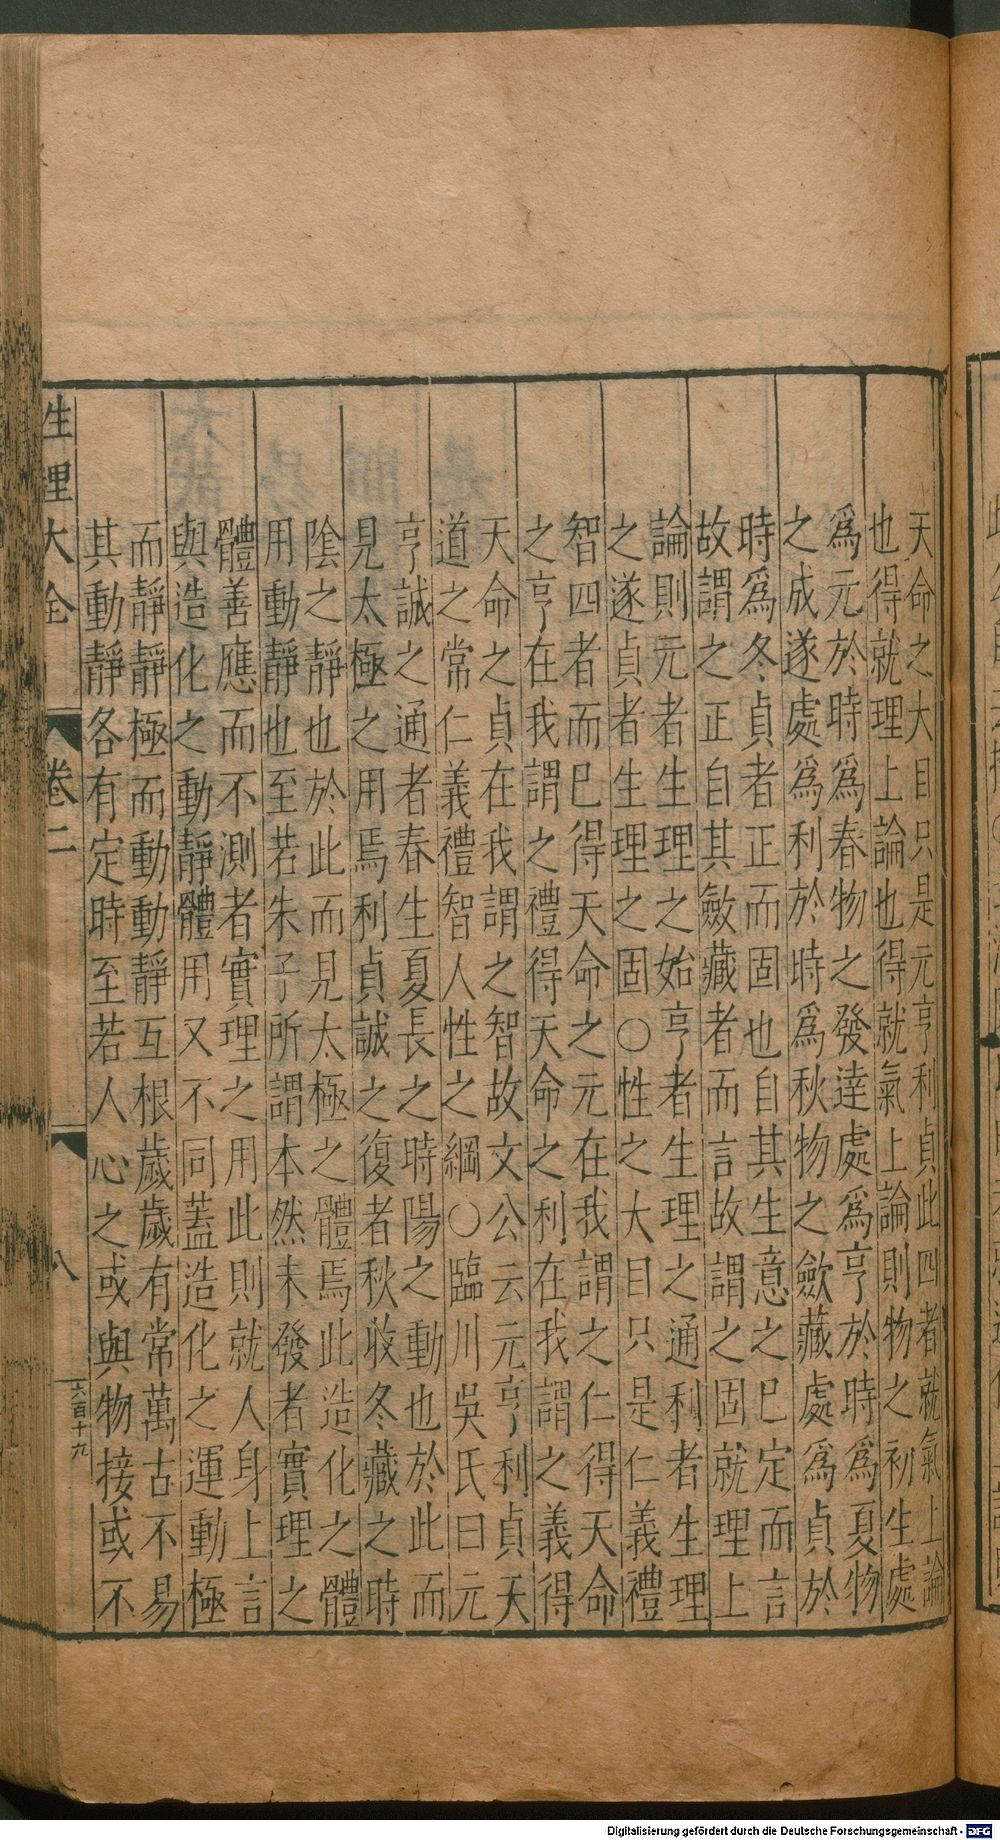 天命之大目只是元亨利貞此四者就氣上論
也得就理上論也得就氣上論則物之初生處
爲元於時爲春物之發達處爲亨於時爲夏物
之成遂處爲利於時爲秋物之歛藏處爲貞於
時爲冬貞者正而固也自其生意之巳定而言
故謂之正自其斂藏者而言故謂之固就理上
論則元者生理之始亨者生理之通利者生理
之遂貞者生理之固○性之大目只是仁義禮
智四者而巳得天命之元在我謂之仁得天命
之亨在我謂之禮得天命之利在我謂之義得
天命之貞在我謂之智故文公云元亨利貞天
道之常仁義禮智人性之綱○臨川吳氏曰元
亨誠之通者春生夏長之時陽之動也於此而
見太極之用焉利貞誠之復者秋收冬藏之時
陰之靜也於此而見太極之體焉此造化之體
用動靜也至若朱子所謂本然未發者實理之
體善應而不測者實理之用此則就人身上言
與造化之動靜體用又不同蓋造化之運動極
而靜靜極而動動靜互根歲歲有常萬古不易
其動靜各有定時至若人心之或與物接或不
性理大全 卷二 八 六百十九
Digitalisierung gefördert durch die Deutsche Forschungsgemeinschaft - DFG